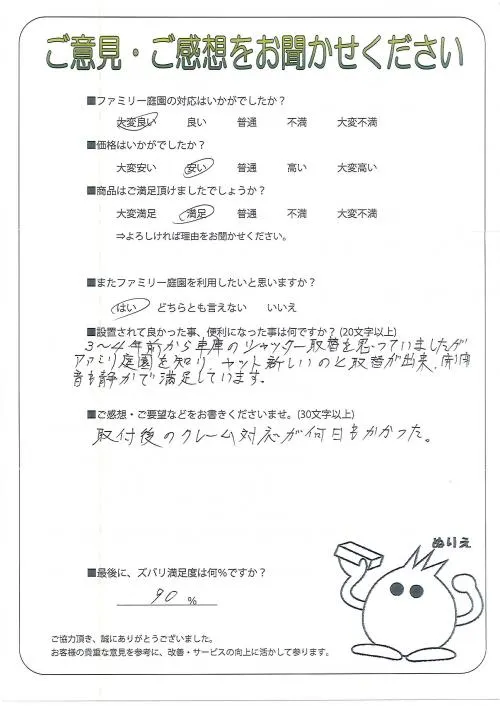 ご意見・ご感想をお聞かせください
■ファミリー庭園の対応はいかがでしたか？
大変良い 良い 普通 不満 大変不満
■価格はいかがでしたか？
大変安い 安い 普通 高い 大変高い
■商品はご満足頂けましたでしょうか？
大変満足 満足 普通 不満 大変不満
⇒よろしければ理由をお聞かせください。
■またファミリー庭園を利用したいと思いますか？
はい どちらとも言えない いいえ
■設置されて良かった事、便利になった事は何ですか？(20文字以上)
3〜4年前から車庫のシャッター取替を思っていましたが
ファミリ庭園を知り、ヤット新しいのと取替が出来、開閉
音も静かで満足しています。
■ご感想・ご要望などをお書きくださいませ。(30文字以上)
取付後のクレーム対応が何日もかかった。
ぬりえ
■最後に、ズバリ満足度は何％ですか？
90 %
ご協力頂き、誠にありがとうございました。
お客様の貴重な意見を参考に、改善・サービスの向上に活かして参ります。